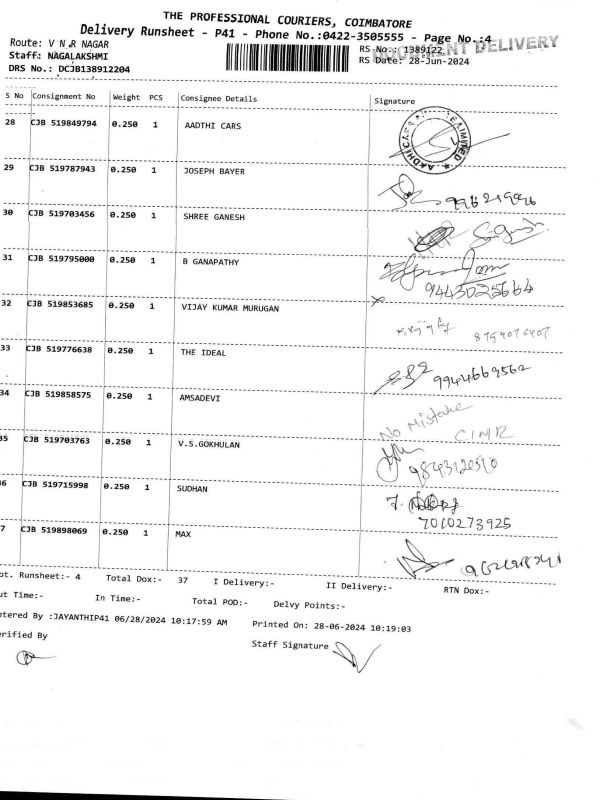 THE PROFESSIONAL COURIERS, COIMBATORE
Delivery Runsheet - P41 - Phone No.:0422-3505555 - Page No.:4
DOCUMENT DELIVERY
Route: V N R NAGAR
RS No.: 1389122
Staff: NAGALAKSHMI
RS Date: 28-Jun-2024
DRS No.: DCJB138912204
S No Consignment No Weight PCS Consignee Details Signature
28 CJB 519849794 0.250 1 AADTHI CARS
29 CJB 519787943 0.250 1 JOSEPH BAYER
30 CJB 519703456 0.250 1 SHREE GANESH
31 CJB 519795000 0.250 1 B GANAPATHY
9443025664
32 CJB 519853685 0.250 1 VIJAY KUMAR MURUGAN
33 CJB 519776638 0.250 1 THE IDEAL
9944669562
34 CJB 519858575 0.250 1 AMSADEVI
No Mistake
35 CJB 519703763 0.250 1 V.S.GOKHULAN
36 CJB 519715998 0.250 1 SUDHAN
7010273925
7 CJB 519898069 0.250 1 MAX
ot. Runsheet:- 4 Total Dox:- 37 I Delivery:- II Delivery:- RTN Dox:-
ut Time:- In Time:- Total POD:- Delvy Points:-
ntered By :JAYANTHIP41 06/28/2024 10:17:59 AM Printed On: 28-06-2024 10:19:03
erified By
Staff Signature